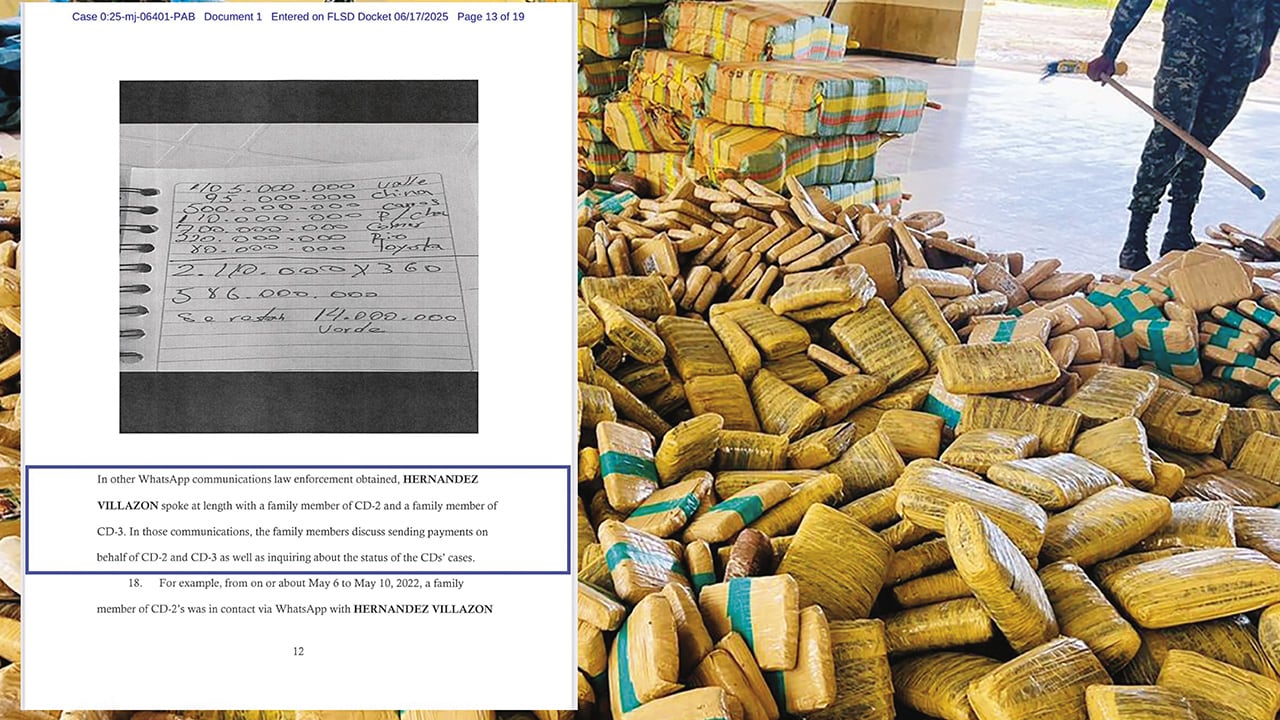 Case 0:25-mj-06401-PAB Document 1 Entered on FLSD Docket 06/17/2025 Page 13 of 19
405.000.000 valle
95.000.000 china
500.000.000
110.000.000
700.000.000
220.000.000
80.000.000 Toyota
2.110.000 X 360
586.000.000
Se restan 14.000.000
Verde
In other WhatsApp communications law enforcement obtained, HERNANDEZ
VILLAZON spoke at length with a family member of CD-2 and a family member of
CD-3. In those communications, the family members discuss sending payments on
behalf of CD-2 and CD-3 as well as inquiring about the status of the CDs' cases.
18. For example, from on or about May 6 to May 10, 2022, a family
member of CD-2's was in contact via WhatsApp with HERNANDEZ VILLAZON
12